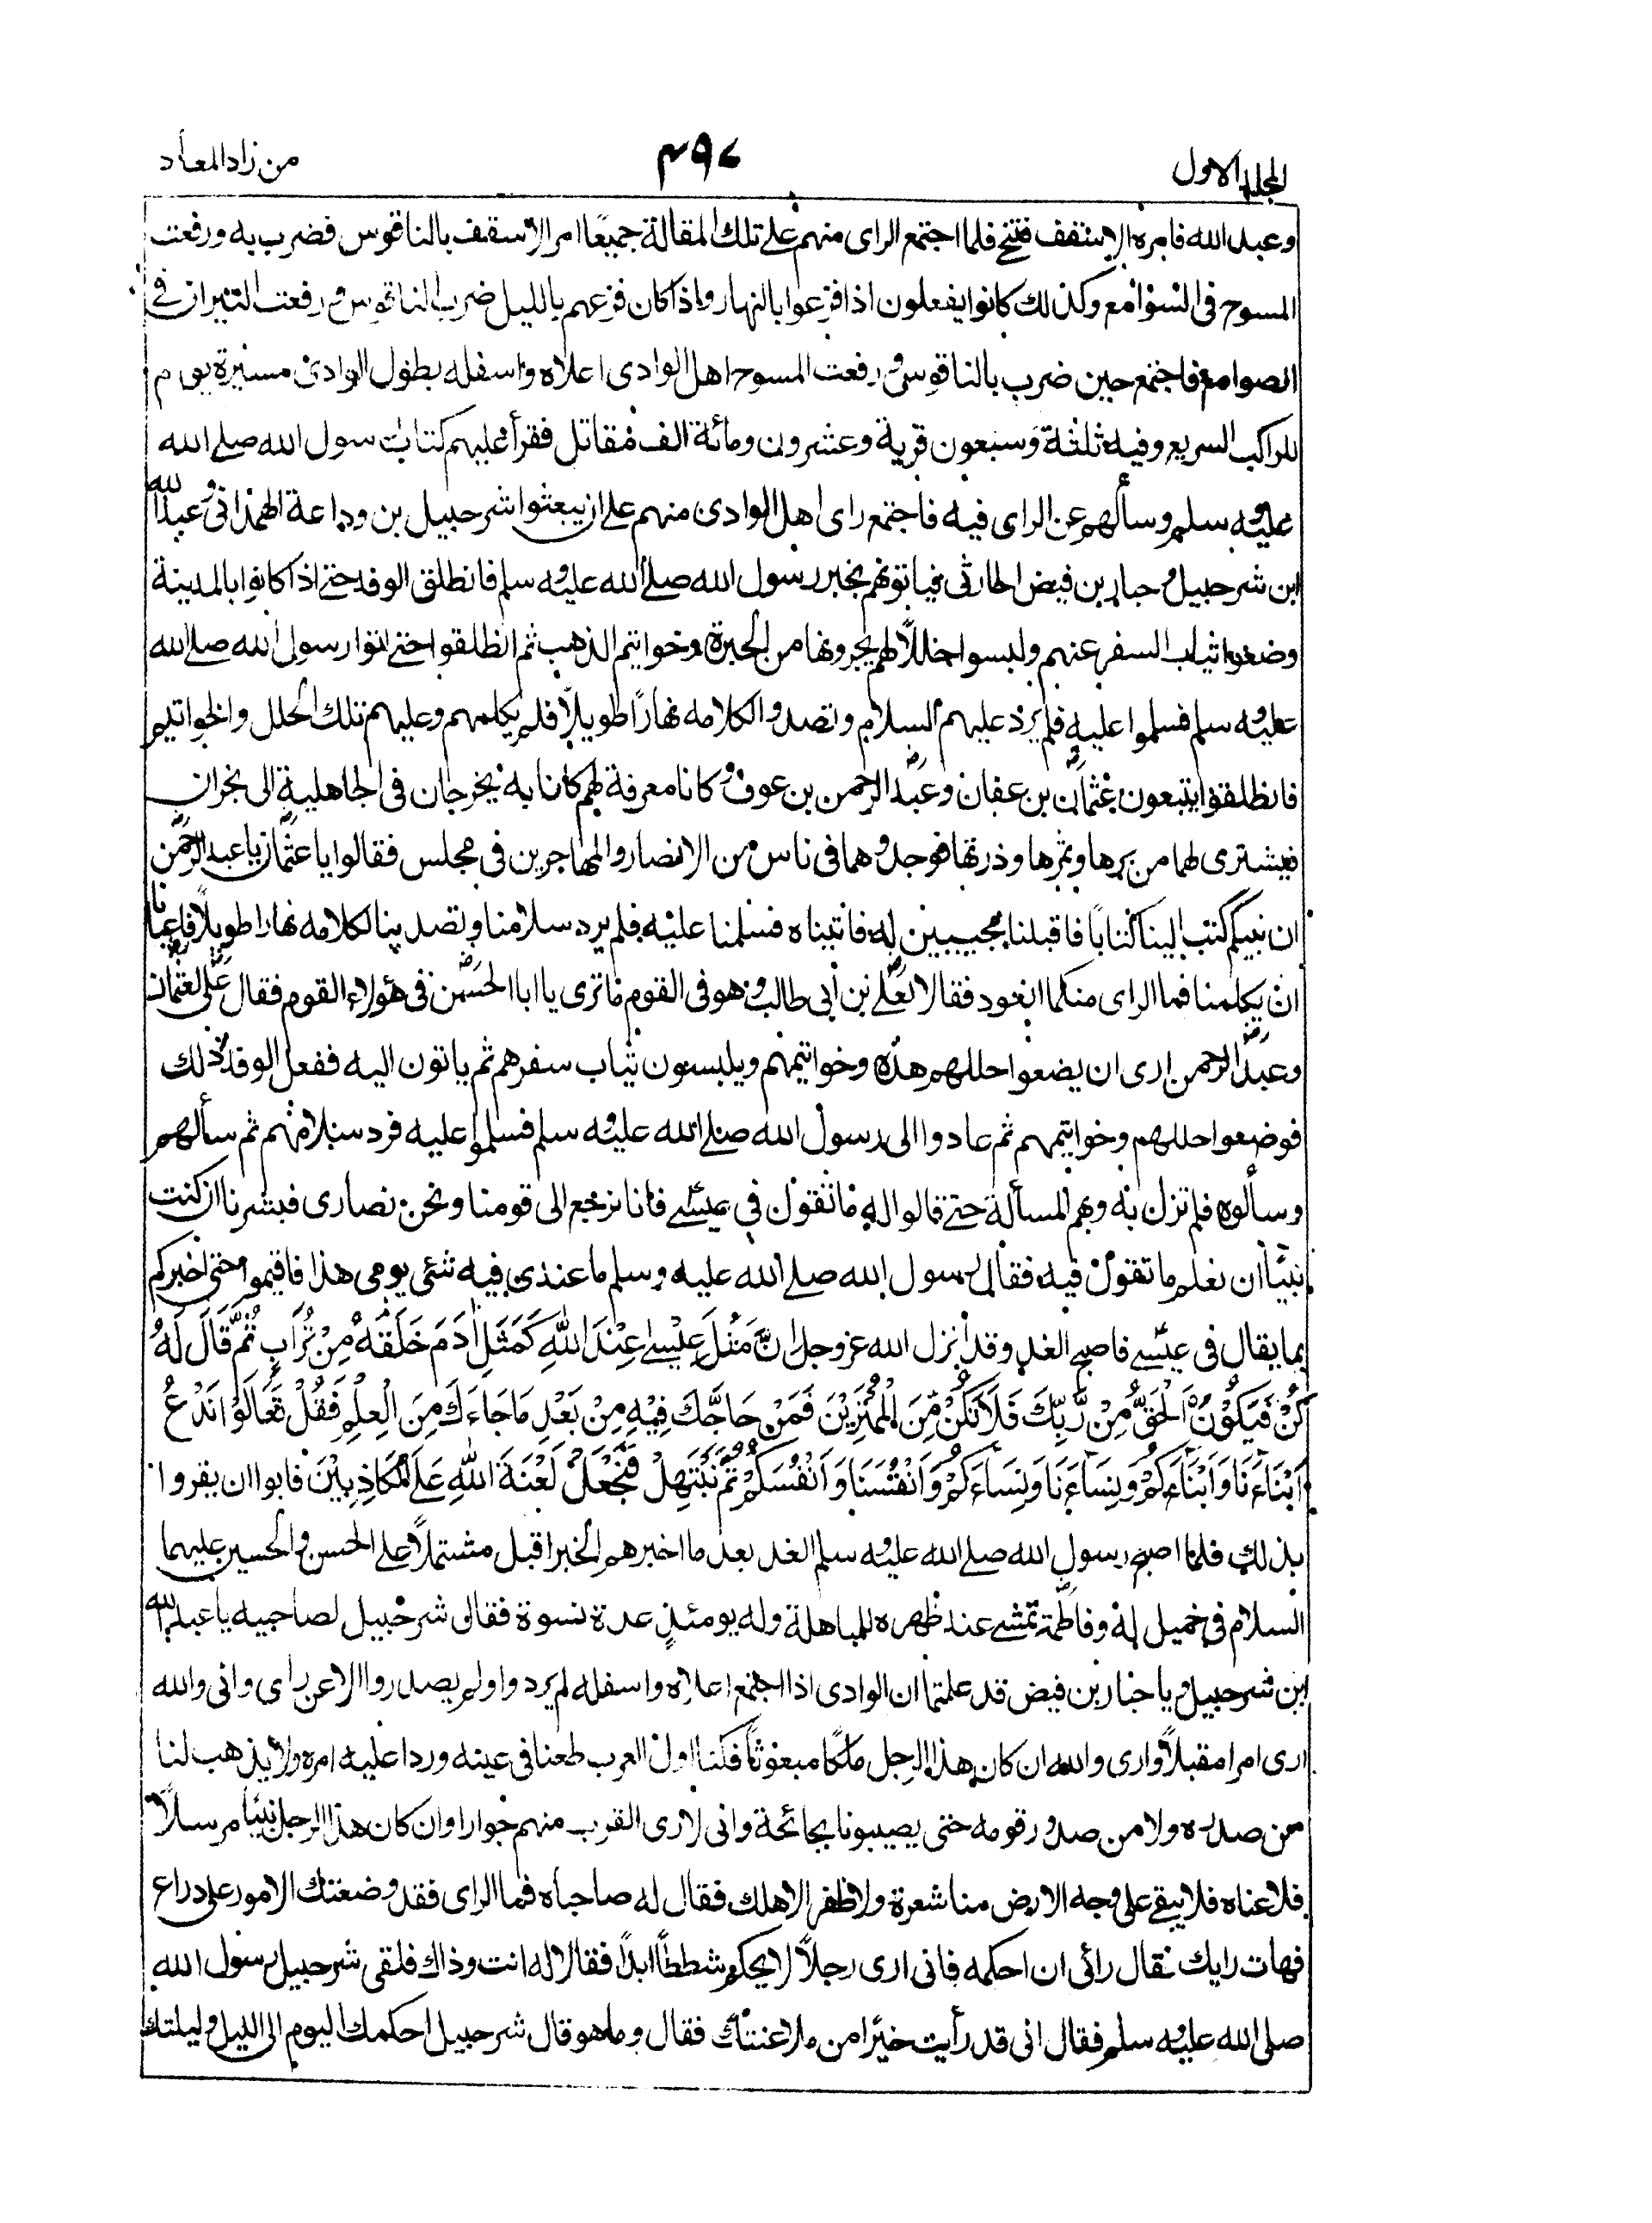 المجلد الاول
۴۹۷
من زاد المعاد
وعبد الله فامره الاسقف فتنحى فلما اجتمع الراى منهم على تلك المقالة جميعًا امر الاسقف بالناقوس فضرب به ورفعت
المسوح فى الصوامع وكذلك كانوا يفعلون اذا فزعوا بالنهار واذا كان فزعهم بالليل ضرب الناقوس ورفعت النيران فى
الصوامع فاجتمع حين ضرب بالناقوس ورفعت المسوح اهل الوادى اعلاه واسفله بطول الوادى مسيرة يوم
للراكب السريع وفيه ثلثة وسبعون قرية وعشرون ومائة الف مقاتل فقرأ عليهم كتاب رسول الله صلے الله
عليه وسلم وسألهم عن الراى فيه فاجتمع راى اهل الوادى منهم على ان يبعثوا شرحبيل بن وداعة الهمذانى وعبد الله
ابن شرحبيل وجبار بن فيض الحارثى فيأتونهم بخبر رسول الله صلے الله عليه وسلم فانطلق الوفد حتى اذا كانوا بالمدينة
وضعوا ثياب السفر عنهم ولبسوا حللًا لهم يجرونها من الحبرة وخواتيم الذهب ثم انطلقوا حتى اتوا رسول الله صلے الله
عليه وسلم فسلموا عليه فلم يرد عليهم السلام وتصدوا لكلامه نهارًا طويلًا فلم يكلمهم وعليهم تلك الحلل والخواتيم
فانطلقوا يتبعون عثمان بن عفان وعبد الرحمن بن عوف وكانا معرفة لهم كانا به يخرجان فى الجاهلية الى نجران
فيشترى لهما من برها وثمرها وذرتها فوجدوهما فى ناس من الانصار والمهاجرين فى مجلس فقالوا يا عثمان يا عبد الرحمن
ان نبيكم كتب الينا كتابًا فاقبلنا مجيبين له فاتيناه فسلمنا عليه فلم يرد سلامنا وتصدينا لكلامه نهارا طويلًا فاعيانا
ان يكلمنا فما الراى منكما انعود فقالا لعلى بن أبى طالب وهو فى القوم ما ترى يا ابا الحسن فى هؤلاء القوم فقال على لعثمان
وعبد الرحمن ارى ان يضعوا حللهم هذه وخواتيمهم ويلبسون ثياب سفرهم ثم ياتون اليه ففعل الوفد ذلك
فوضعوا حللهم وخواتيمهم ثم عادوا الى رسول الله صلے الله عليه وسلم فسلموا عليه فرد سلامهم ثم سألهم
وسألوه فلم تزل به وبهم المسألة حتى قالوا له ما تقول فى عيسے فانا نرجع الى قومنا ونحن نصارى فبشرنا ان كنت
نبيًا ان نعلم ما تقول فيه فقال رسول الله صلے الله عليه وسلم ما عندى فيه شئى يومى هذا فاقيموا حتى اخبركم
بما يقال فى عيسے فاصبح الغد وقد أنزل الله عز وجل اِنَّ مَثَلَ عِيْسٰے عِنْدَ اللّٰهِ كَمَثَلِ اٰدَمَ خَلَقَهٗ مِنْ تُرَابٍ ثُمَّ قَالَ لَهٗ
كُنْ فَيَكُوْنُ اَلْحَقُّ مِنْ رَّبِّكَ فَلَا تَكُنْ مِّنَ الْمُمْتَرِيْنَ فَمَنْ حَاجَّكَ فِيْهِ مِنْ بَعْدِ مَا جَاءَكَ مِنَ الْعِلْمِ فَقُلْ تَعَالَوْا نَدْعُ
اَبْنَاءَنَا وَاَبْنَاءَكُمْ وَنِسَاءَنَا وَنِسَاءَكُمْ وَاَنْفُسَنَا وَاَنْفُسَكُمْ ثُمَّ نَبْتَهِلْ فَنَجْعَلْ لَعْنَةَ اللّٰهِ عَلَى الْكَاذِبِيْنَ فابوا ان يقروا
بذلك فلما اصبح رسول الله صلے الله عليه وسلم الغد بعد ما اخبرهم الخبر اقبل مشتملًا على الحسن والحسين عليهما
السلام فى خميل له وفاطمة تمشے عند ظهره للمباهلة وله يومئذٍ عدة نسوة فقال شرحبيل لصاحبيه يا عبد الله
ابن شرحبيل ويا جبار بن فيض قد علمتما ان الوادى اذا اجتمع اعلاه واسفله لم يردوا ولم يصدروا الا عن راى وانى والله
ارى امرا مقبلًا وارى والله ان كان هذا الرجل ملكا مبعوثا فكنا اول العرب طعنا فى عينه وردا عليه امره ولا يذهب لنا
من صدره ولا من صدور قومه حتى يصيبونا بجائحة وانى لارى القرب منهم جوارا وان كان هذا الرجل نبيًا مرسلًا
فلاعناه فلا يبقى على وجه الارض منا شعرة ولا ظفر الا هلك فقال له صاحباه فما الراى فقد وضعتك الامور على ذراع
فهات رايك فقال رائى ان احكمه فانى ارى رجلًا لا يحكم شططًا ابدًا فقالا له انت وذاك فلقى شرحبيل رسول الله
صلى الله عليه وسلم فقال انى قد رأيت خيرًا من ملاعنتك فقال وما هو قال شرحبيل احكمك اليوم الى الليل وليلتك